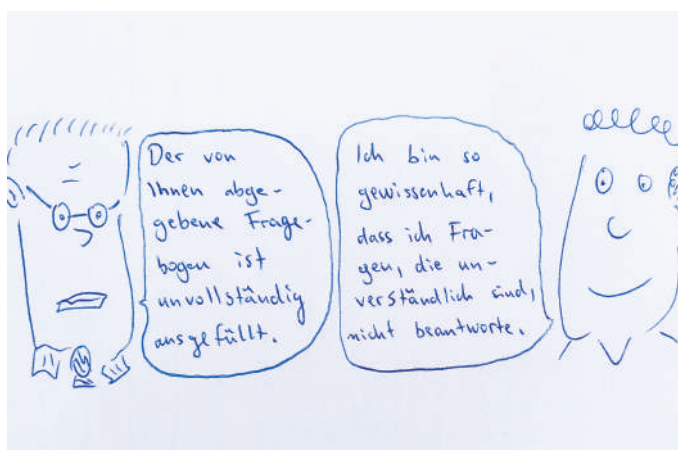 Der von
Ihnen abge-
gebene Frage-
bogen ist
unvollständig
ausgefüllt.
Ich bin so
gewissenhaft,
dass ich Fra-
gen, die un-
verständlich sind,
nicht beantworte.